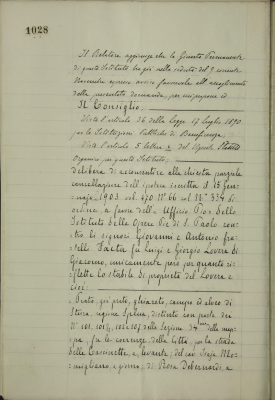 1028
Il Relatore aggiunge che la Giunta Permanente
di questo Istituto ha già nella seduta del 9 corrente
Novembre espresso avviso favorevole all'accoglimento
della presentata domanda, per cui propone ed
Il Consiglio,
Visto l'articolo 36 della Legge 17 luglio 1890
per le Istituzioni Pubbliche di Beneficenza,
Visto l'articolo 5 lettera del vigente Statuto
Organico per questo Istituto,
delibera di acconsentire alla chiesta parziale
cancellazione dell'ipoteca iscritta il 15 Gen-
naio 1903 vol. 470 N° 66 sul N° 334 di
ordine a favore dell'Ufficio Pio dello
Istituto delle Opere Pie di S. Paolo con-
tro li signori Giovanni e Antonio fra-
telli fu Luigi e Giorgio Lovera di
Giacomo, unicamente però per quanto ri-
flette lo stabile di proprietà del Lovera e
cioè:
Prato, già prato, ghiareto, campo ed alveo di
Stura, regione Spina, distinto con parte dei
N. 101, 101½, 105 e 107 nella Sezione 34 della map-
pa, fra le coerenze della città, per la strada
delle Cascinette, a levante; del cav. Mo-
migliano, a giorno; di Rosa Debernardi, a